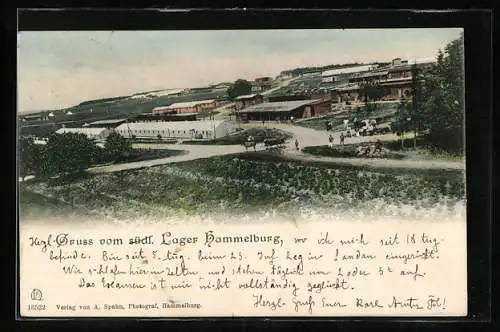 Herzl. Gruss vom südl. Lager Hammelburg, wo ich mich seit 18 Tag.
befinde. Bin seit 5. Aug. beim 23. Inf. Reg in Landau eingerückt.
Wir schlafen hier in Zelten, und stehen täglich um 2 oder 3 Uhr auf.
Das ist mir nicht vollständig geglückt.
Herzl. Gruß Euer Karl
18522 Verlag von A. Spahn, Photograf, Hammelburg.